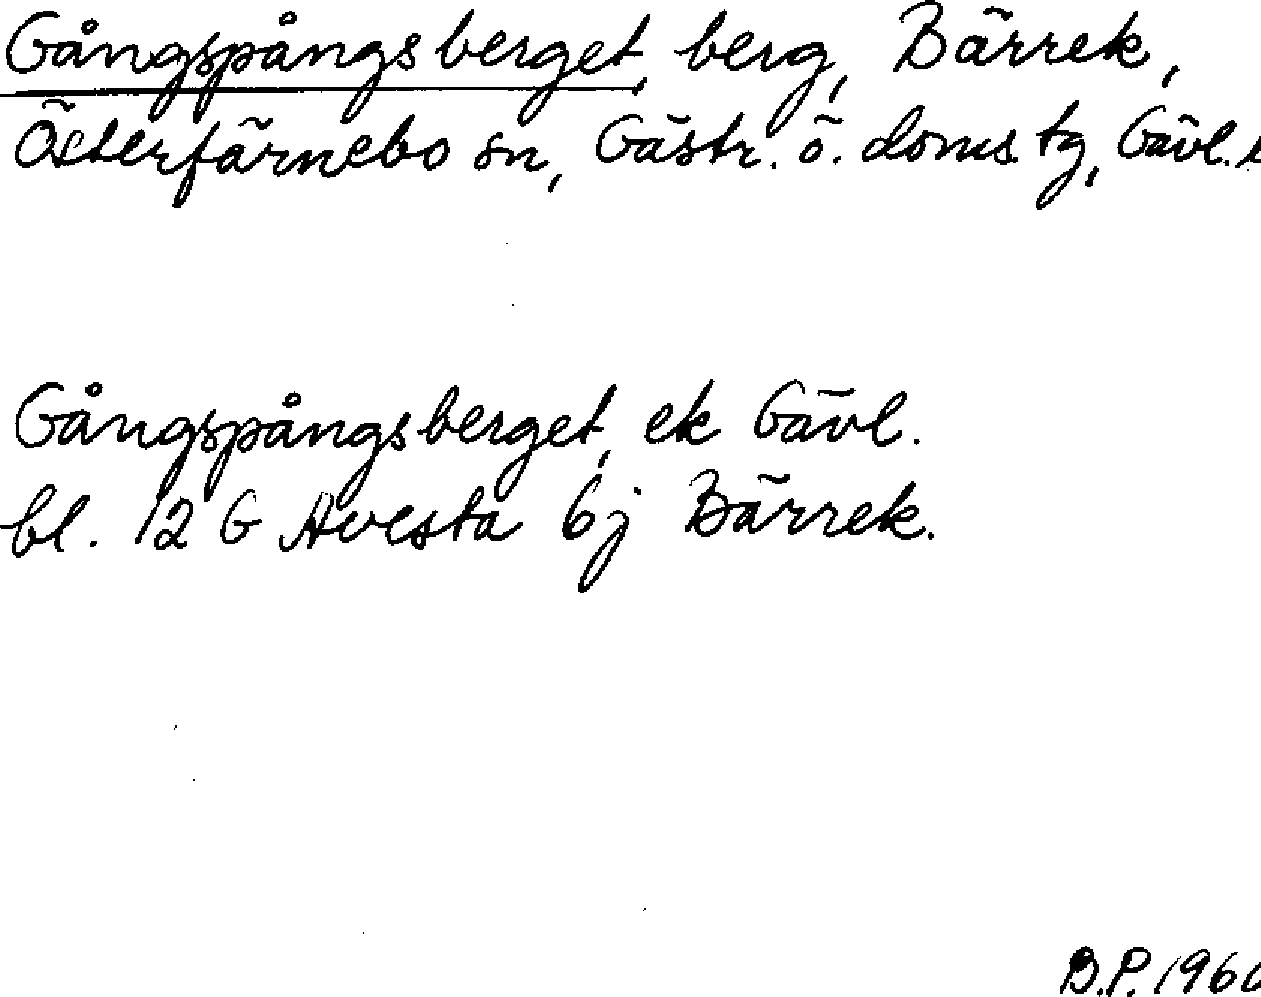 Gångspångsberget, berg, Bärrek,
Österfärnebo sn, Gästr. ö. doms. tg, Gävl.
Gångspångsberget, ek Gävl.
bl. 12 G Avesta 6j Bärrek.
B.P.